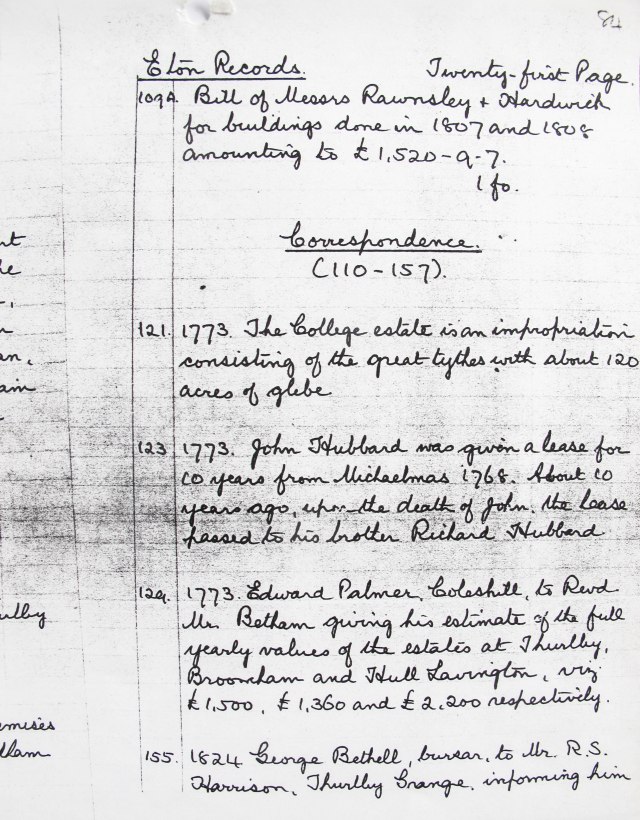 84
Eton Records. Twenty-first Page.
109A. Bill of Messrs Rawnsley + Hardwich
for buildings done in 1807 and 1808
amounting to £1,520-9-7.
1 fo.
Correspondence.
(110-157).
121. 1773. The College estate is an impropriation
consisting of the great tythes with about 120
acres of glebe
123 1773. John Hubbard was given a lease for
10 years from Michaelmas 1768. About 10
years ago, upon the death of John, the lease
passed to his brother Richard Hubbard
129. 1773. Edward Palmer, Coleshill, to Revd
Mr. Betham giving his estimate of the full
yearly values of the estates at Thurlby,
Broomham and Hull Lavington, viz
£1,500, £1,360 and £2,200 respectively.
155. 1824 George Bethell, bursar, to Mr. R.S.
Harrison, Thurlby Grange, informing him